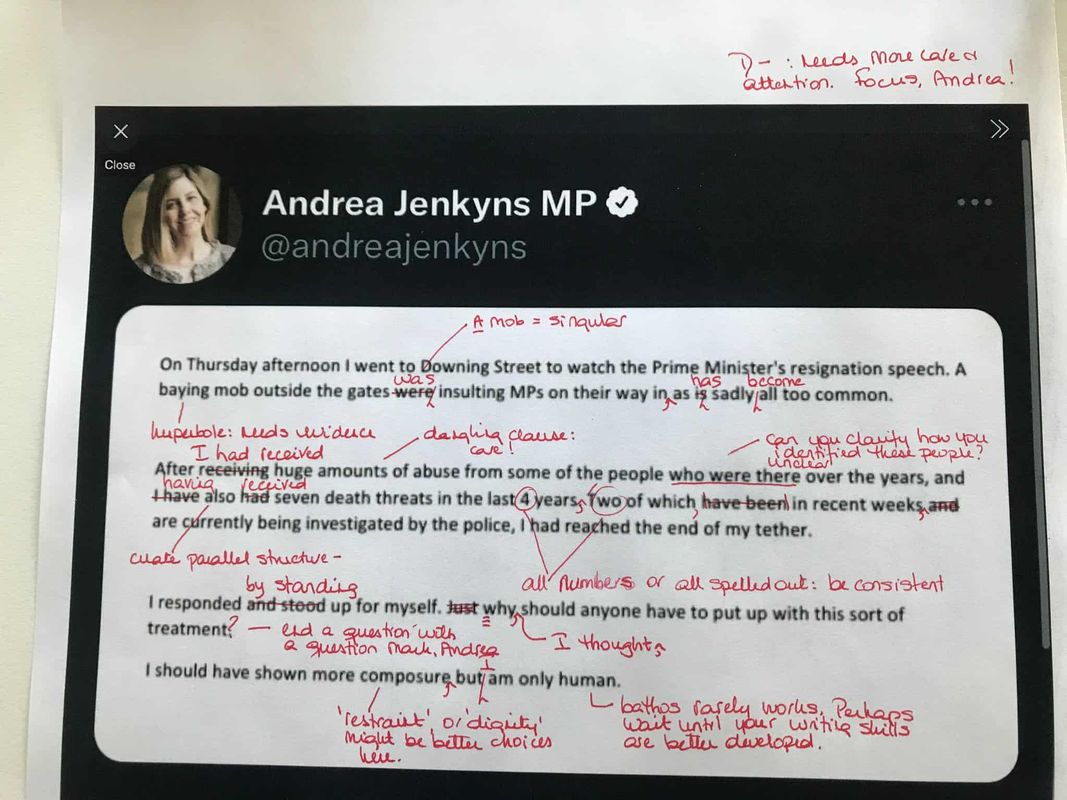 D- : needs more care &
attention. Focus, Andrea!
Close
Andrea Jenkyns MP
@andreajenkyns
A mob = singular
On Thursday afternoon I went to Downing Street to watch the Prime Minister's resignation speech. A
was has become
baying mob outside the gates were insulting MPs on their way in, as is sadly all too common.
hyperbole: needs evidence
dangling clause:
care!
can you clarify how you
identified these people?
unclear
I had received
After receiving huge amounts of abuse from some of the people who were there over the years, and
having received
I have also had seven death threats in the last 4 years, Two of which, have been in recent weeks, and
are currently being investigated by the police, I had reached the end of my tether.
create parallel structure -
all numbers or all spelled out: be consistent
by standing
I responded and stood up for myself. Just why, should anyone have to put up with this sort of
treatment?
— end a question with
a question mark, Andrea
I thought,
I
I should have shown more composure, but am only human.
'restraint' or 'dignity'
might be better choices
here.
bathos rarely works, Perhaps
wait until your writing skills
are better developed.